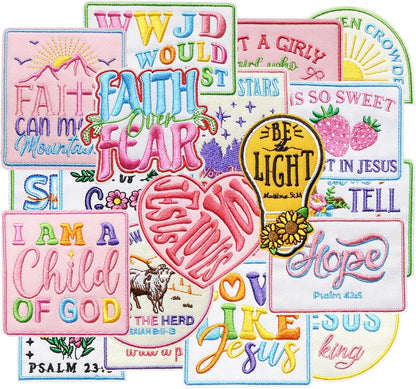 WWJD
WOULD
ST
T A GIRLY
EN CROWDE
FAITH
CAN MO
Mountain
FAITH
Over
FEAR
STARS
IS SO SWEET
ST IN JESUS
BE
A
LIGHT
Matthew 5:14
JESUS
LOVES
YOU
TELL
I AM A
Child
OF GOD
Hope
Psalm 42:5
THE HERD
OVE
LIKE
Jesus
ESUS
king
PSALM 23: